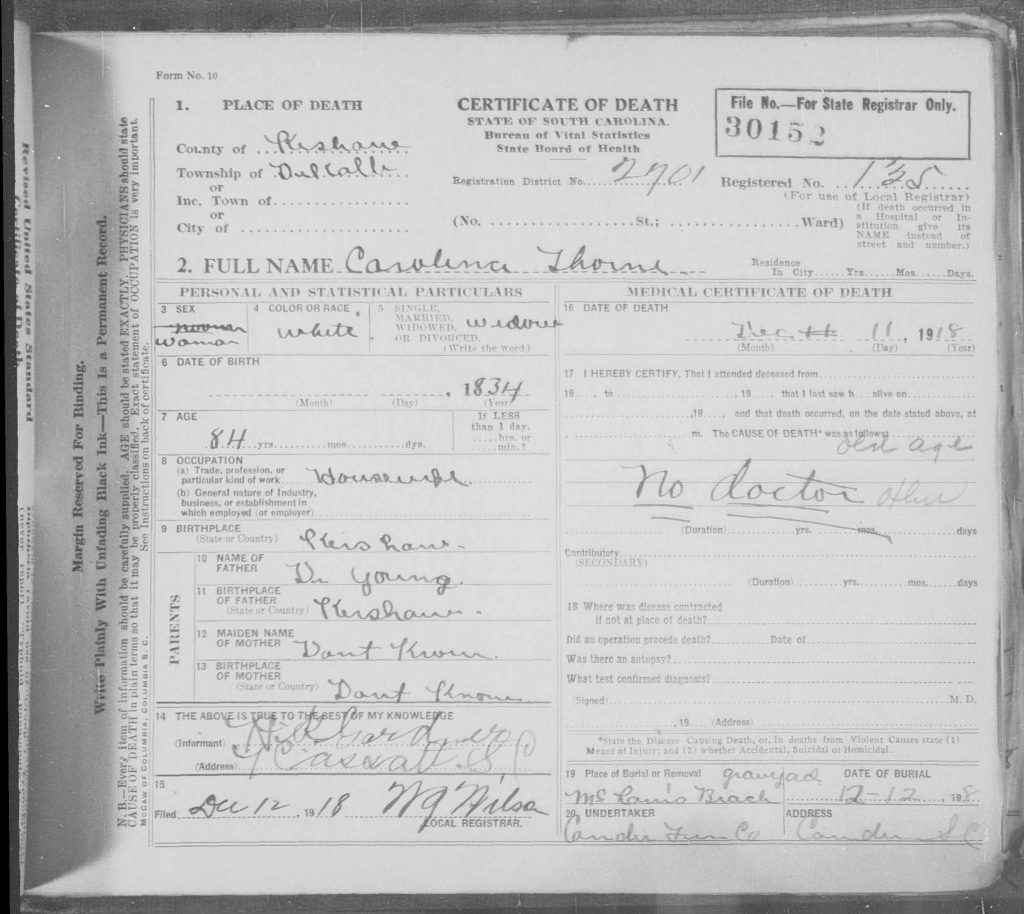 Form No. 10
1. PLACE OF DEATH
County of Kershaw
Township of
or
Inc. Town of
or
City of
CERTIFICATE OF DEATH
STATE OF SOUTH CAROLINA.
Bureau of Vital Statistics
State Board of Health
File No.—For State Registrar Only.
30152
Registration District No. 2701
Registered No. 135
(For use of Local Registrar)
(No. St.; Ward)
(If death occurred in
a Hospital or In-
stitution give its
NAME instead of
street and number.)
2. FULL NAME Carolina Thorne
Residence
In City Yrs. Mos. Days.
PERSONAL AND STATISTICAL PARTICULARS
3 SEX
woman
4 COLOR OR RACE
white
5 SINGLE,
MARRIED,
WIDOWED, widow
OR DIVORCED.
(Write the word)
6 DATE OF BIRTH
, 1834
(Month) (Day) (Year)
7 AGE
84 yrs. mos. dys.
If LESS
than 1 day.
hrs. or
min.?
8 OCCUPATION
(a) Trade, profession, or
particular kind of work Housewife
(b) General nature of Industry,
business, or establishment in
which employed (or employer)
9 BIRTHPLACE
(State or Country) Kershaw
PARENTS
10 NAME OF
FATHER
Dr Young.
11 BIRTHPLACE
OF FATHER
(State or Country) Kershaw.
12 MAIDEN NAME
OF MOTHER Dont Know.
13 BIRTHPLACE
OF MOTHER
(State or Country) Dont Know
14 THE ABOVE IS TRUE TO THE BEST OF MY KNOWLEDGE
(Informant) Gardner
(Address) Cassatt S.C
15
Filed Dec 12, 1918
LOCAL REGISTRAR.
MEDICAL CERTIFICATE OF DEATH
16 DATE OF DEATH
Dec 11, 1918
(Month) (Day) (Year)
17 I HEREBY CERTIFY, That I attended deceased from
19 , to , 19 that I last saw h alive on
,19 , and that death occurred, on the date stated above, at
m. The CAUSE OF DEATH* was as follows:
old age
No doctor
(Duration) yrs. mos. days
Contributory
(SECONDARY)
(Duration) yrs. mos. days
18 Where was disease contracted
if not at place of death?
Did an operation precede death? Date of
Was there an autopsy?
What test confirmed diagnosis?
(Signed) M. D.
, 19 (Address)
*State the Disease Causing Death, or, in deaths from Violent Causes state (1)
Means of Injury; and (2) whether Accidental, Suicidal or Homicidal.
19 Place of Burial or Removal graveyad
DATE OF BURIAL
12-12, 198
20 UNDERTAKER
ADDRESS
S C
Margin Reserved For Binding.
Write Plainly With Unfading Black Ink—This Is a Permanent Record.
N. B.—Every item of information should be carefully supplied. AGE should be stated EXACTLY. PHYSICIANS should state
CAUSE OF DEATH in plain terms so that it may be properly classified. Exact statement of OCCUPATION is very important.
See Instructions on back of certificate.
McCAW OF COLUMBIA, COLUMBIA S. C.
Revised United States Standard
Certificate of Death